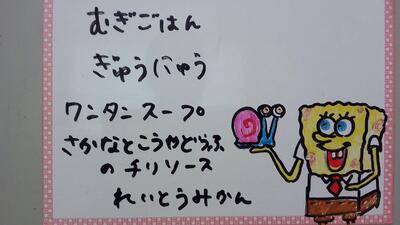 むぎごはん
ぎゅうにゅう
ワンタンスープ
さかなとこうやどうふ
のチリソース
れいとうみかん